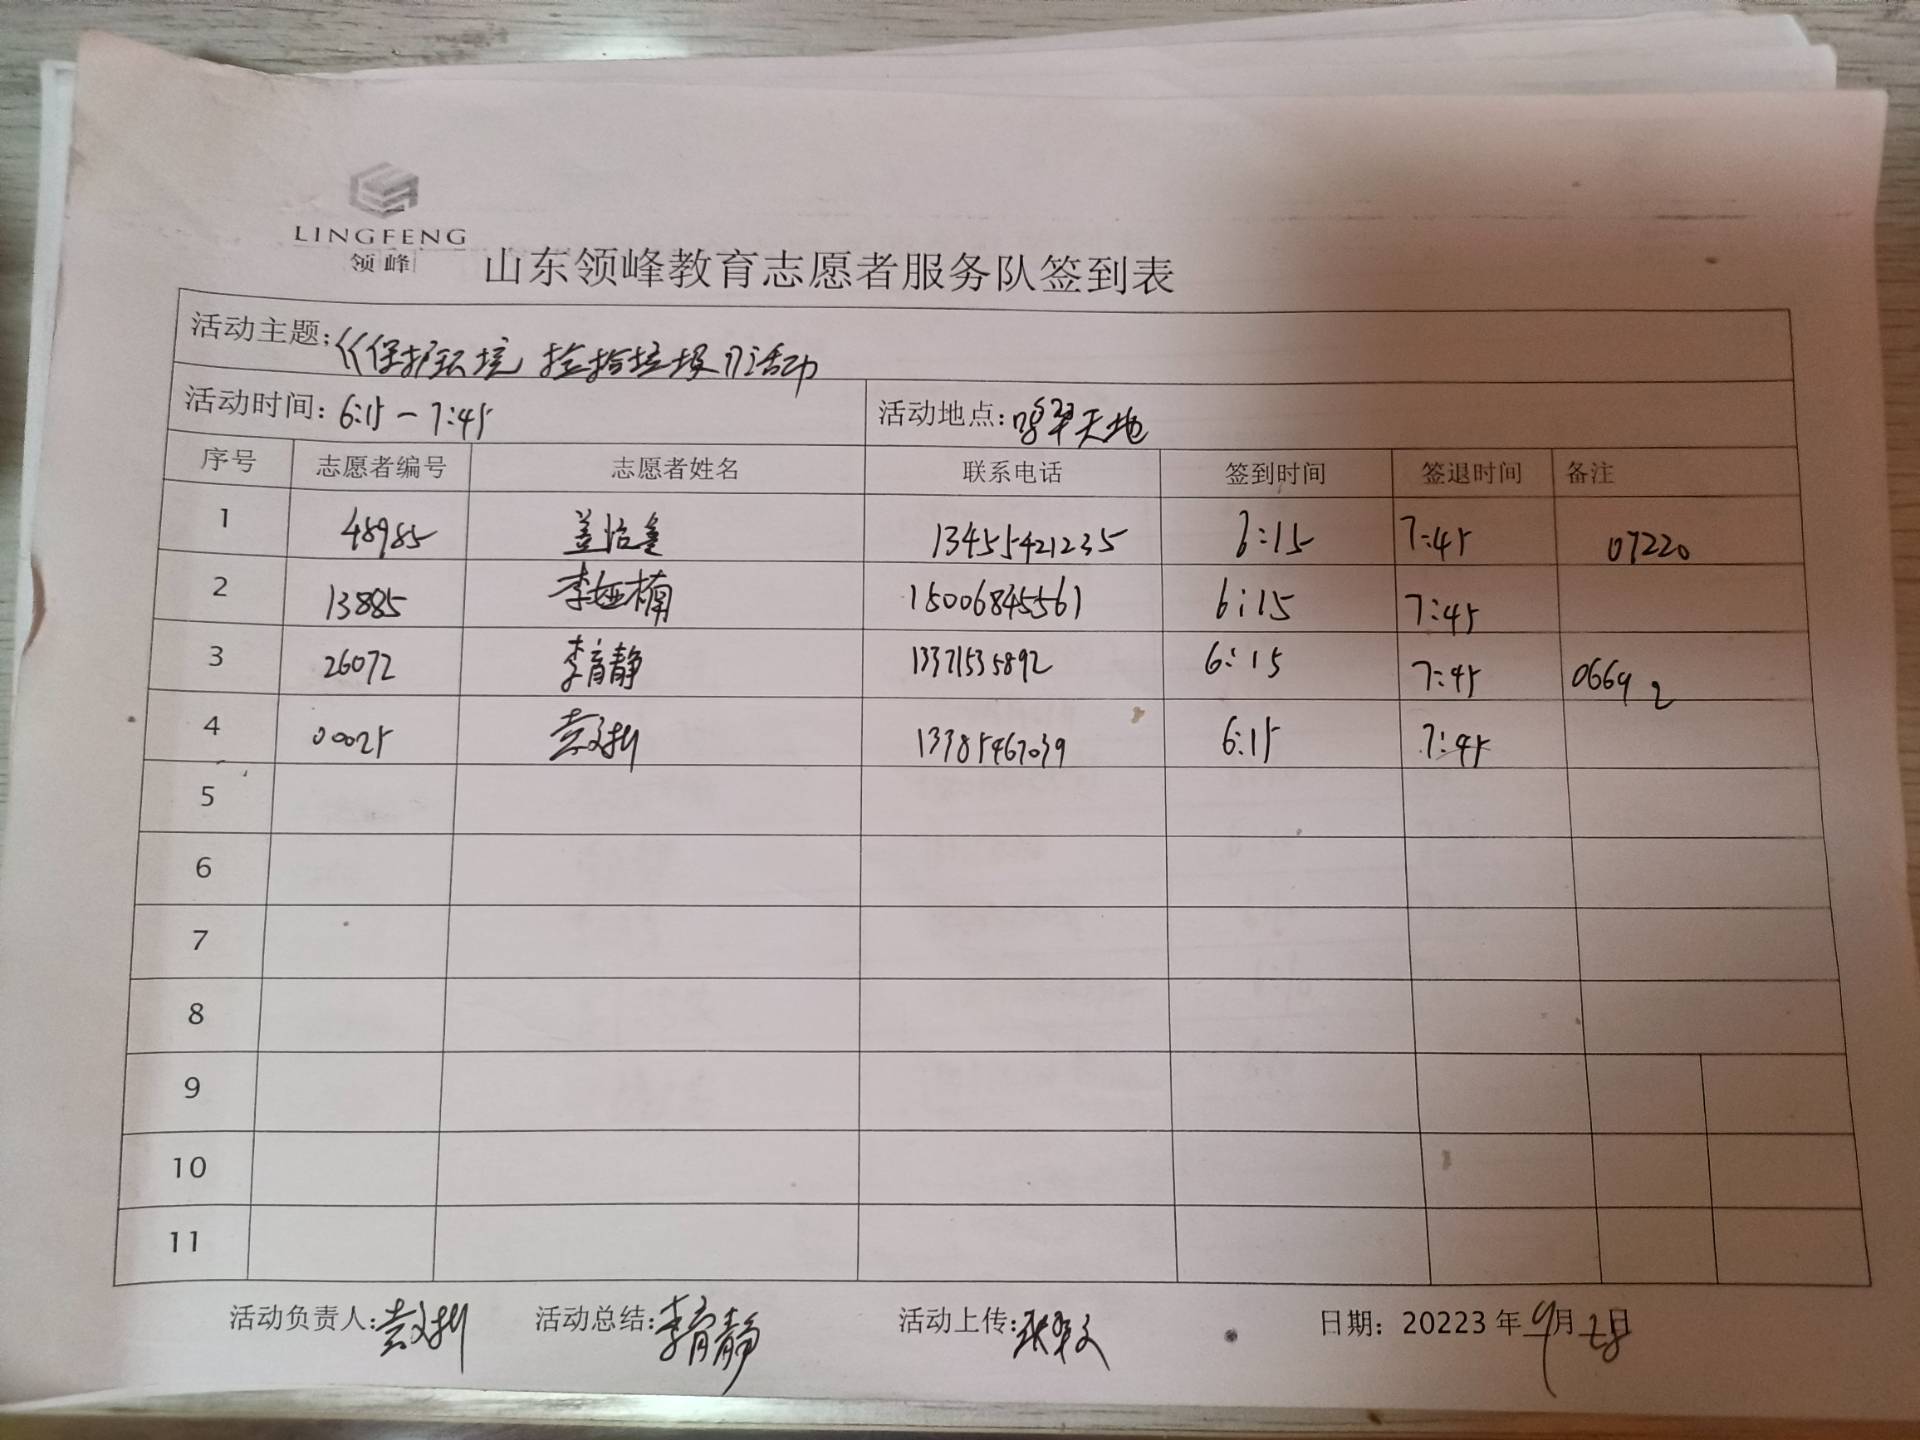 LINGFENG
领峰
山东领峰教育志愿者服务队签到表
活动主题:《保护环境 捡拾垃圾》活动
活动时间:6:15-7:45 活动地点:鸣翠天地
序号 志愿者编号 志愿者姓名 联系电话 签到时间 签退时间 备注
1 48985 盖怡鑫 13455421235 6:15 7:45 07220
2 13885 李娅楠 15006845561 6:15 7:45
3 26072 李育静 13371535892 6:15 7:45 06692
4 00025 13385467039 6:15 7:45
5
6
7
8
9
10
11
活动负责人: 活动总结:李育静 活动上传: 日期:20223年9月28日